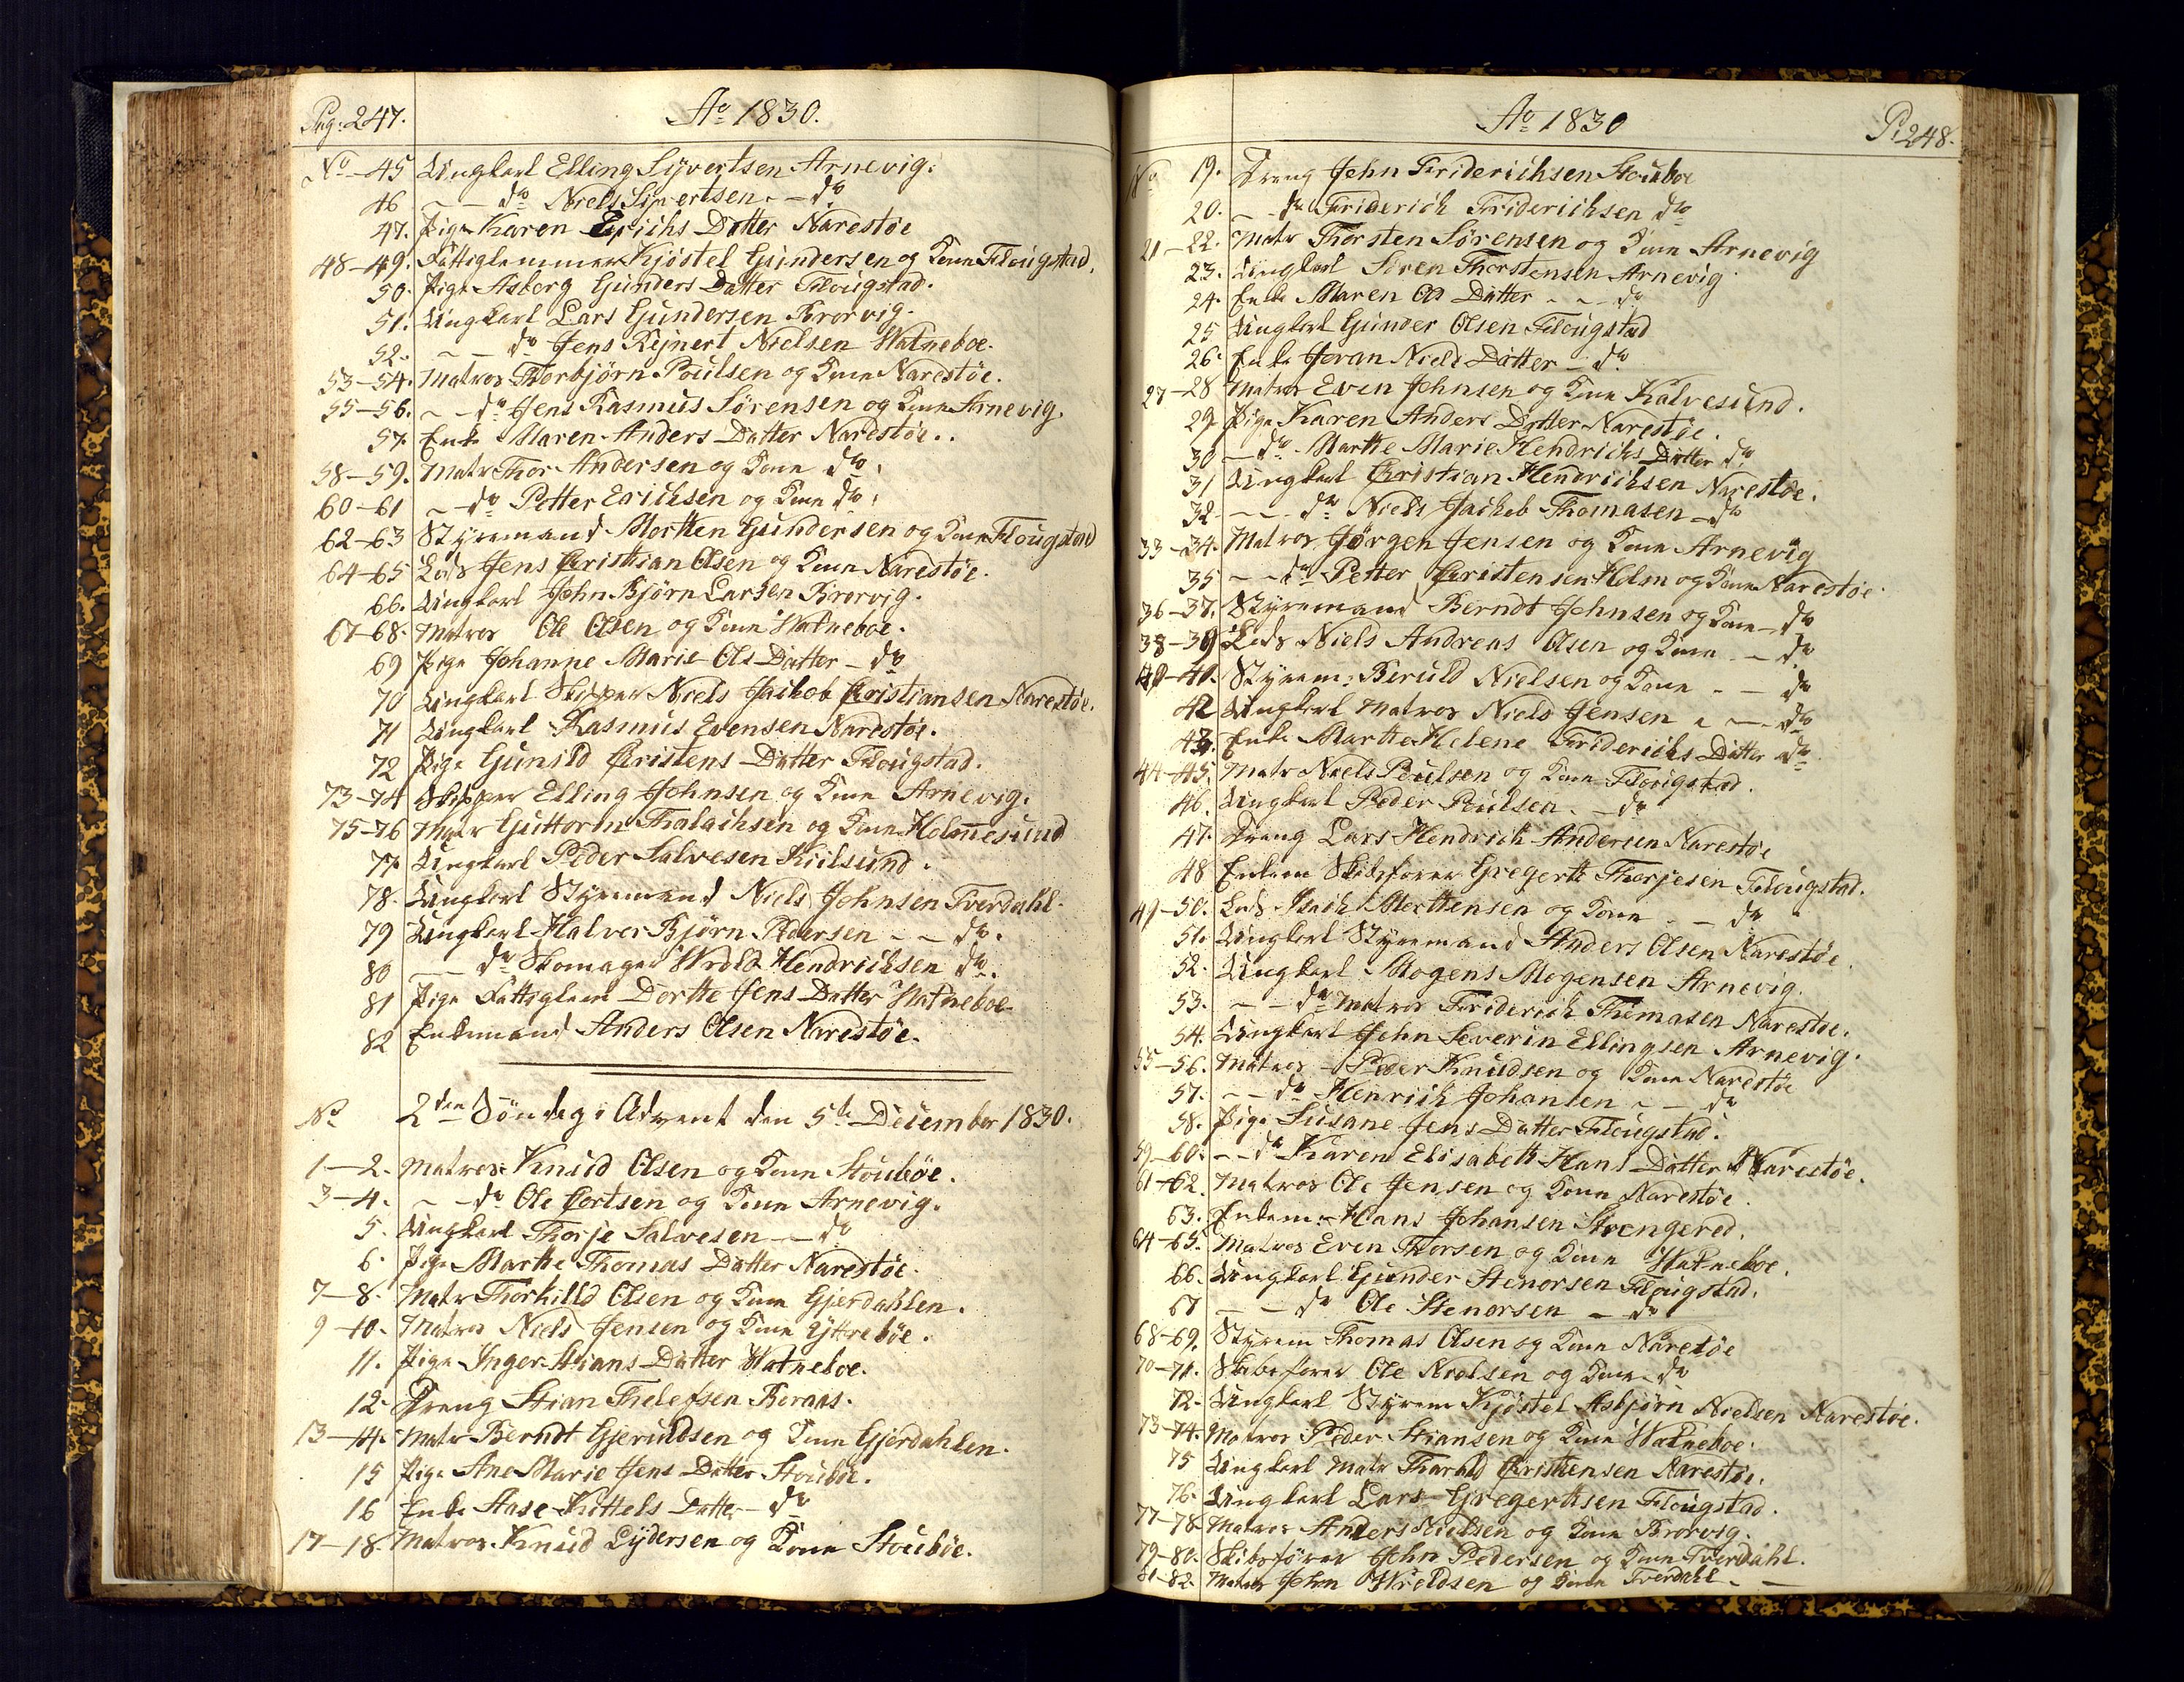 Pag: 247.
Ao 1830.
No 45 Ungkarl Elling Syvertsen Arnevig.
46 — — do Niels Sivertsen — do
47. Pige Karen Erichs Datter Narestøe
48-49. Fattiglemmer Kjøstel Gundersen og Kone Flougstad.
50. Pige Asberg Gunders Datter Flougstad.
51. Ungkarl Lars Gundersen Brorvig.
52. — — do Jens Rejnert Nielsen Watneboe.
53-54. Matros Thorbjørn Poulsen og Kone Narestøe.
55-56. — — do Jens Rasmus Sørensen og Kone Arnevig.
57. Enke Maren Anders Datter Narestøe.
58-59. Matr Thor Andersen og Kone do.
60-61 — do Petter Erichsen og Kone do.
62-63 Styrmand Morthen Gundersen og Kone Flougstad
64-65 Lods Jens Christian Olsen og Kone Narestøe.
66. Ungkarl John Bjørn Larsen Brorvig.
67-68. Matros Ole Olsen og Kone Watneboe.
69 Pige Johanne Marie Ols Datter — do
70 Ungkarl Skipper Niels Jachob Christiansen Narestøe.
71 Ungkarl Rasmus Evensen Narestøe.
72 Pige Gunild Christens Datter Flougstad.
73-74 Skipper Elling Johnsen og Kone Arnevig.
75-76 Matr Guttorm Thalachsen og Kone Holmesund
77. Ungkarl Peder Salvesen Kiilsund.
78. Ungkarl Styrmand Niels Johnsen Tverdahl.
79 Ungkarl Halvor Bjørn Pedersen — — do.
80 — — do Skomager Wrold Hendrichsen do.
81 Pige Fattiglem Dorthe Jens Datter Watneboe
82 Enkemand Anders Olsen Narestøe.
No 2den Søndag i Advent den 5te December 1830.
1-2. Matros Knud Olsen og Kone Stoubøe.
3-4. — — do Ole Cortsen og Kone Arnevig.
5. Ungkarl Thorje Salvesen — — do
6. Pige Marthe Thomas Datter Narestøe.
7-8. Matr Thorkilld Olsen og Kone Gjerdahlen.
9-10. Matros Niels Jensen og Kone Yttrebøe.
11. Pige Inger Stians Datter Watneboe.
12. Dreng Stian Thelefsen Boraas.
13-14. Matr Berndt Gjeruldsen og Kone Gjerdahlen.
15 Pige Ane Marie Jens Datter Stoubøe.
16 Enke Aase Kittels Datter — do
17-18. Matros Knud Lydersen og Kone Stoubøe.
Ao 1830
P: 248.
No 19. Dreng John Friderichsen Stouboe
20. — do Friderich Friderichsen do
21-22. Matr Thorsten Sørensen og Kone Arnevig
23. Ungkarl Søren Thorstensen Arnevig.
24. Enke Maren Ols Datter — — do
25 Ungkarl Gunder Olsen Flougstad
26. Enke Joran Niels Datter — do
27-28 Matros Even Johnsen og Kone Kalvesund.
29. Pige Karen Anders Datter Narestøe.
30 — do Marthe Marie Hendrichs Datter do
31 Ungkarl Christian Hendrichsen Narestøe.
32 — — do Niels Jachob Thomasen — do
33-34. Matros Jørgen Jensen og Kone Arnevig
35 — — do Petter Christensen Holm og Kone Narestøe.
36-37. Styrmand Berndt Johnsen og Kone — do
38-39 Lods Niels Andreas Olsen og Kone — do
40-41. Styrm: Beruld Nielsen og Kone — — do
42 Ungkarl Matros Niels Jensen — — do
43. Enke Marthe Helene Friderichs Datter do
44-45. Matr Niels Poulsen og Kone Flougstad.
46. Ungkarl Peder Poulsen. — do
47. Dreng Lars Hendrich Andersen Narestøe
48 Enkem Skibsfører Gregert Thorjesen Flougstad.
49-50. Lods Isach Morttensen og Kone — — do
51. Ungkarl Styrmand Anders Olsen Narestøe
52. Ungkarl Mogens Mogensen Arnevig.
53. — — do Matros Friderich Thomasen Narestøe.
54. Ungkarl John Severin Ellingsen Arnevig.
55-56. Matros Peder Knudsen og Kone Narestøe
57. — — do Henrich Johansen — — do
58. Pige Susane Jens Datter Flougstad.
59-60. — — do Karen Elisabeth Hans Datter Narestøe.
61-62. Matros Ole Jensen og Kone Narestøe.
63. Enkem: Hans Johansen Strengered.
64-65. Matros Even Thorsen og Kone Watneboe.
66. Ungkarl Gunder Stenorsen Flougstad.
67 — — do Ole Stenorsen — do
68-69. Styrm Thomas Olsen og Kone Narestøe
70-71. Skibsfører Ole Nielsen og Kone do
72. Ungkarl Styrm Kjøstel Asbjørn Nielsen Narestøe.
73-74. Matros Peder Stiansen og Kone Watneboe.
75 Ungkarl Matr Tharald Christensen Narestøe.
76. Ungkarl Lars Gregertsen Flougstad.
77-78 Matros Anders Nielsen og Kone Brorvig.
79-80. Skibsfører John Pedersen og Kone Tverdahl.
81-82. Matros John Wroldsen og Kone Tverdahl — —